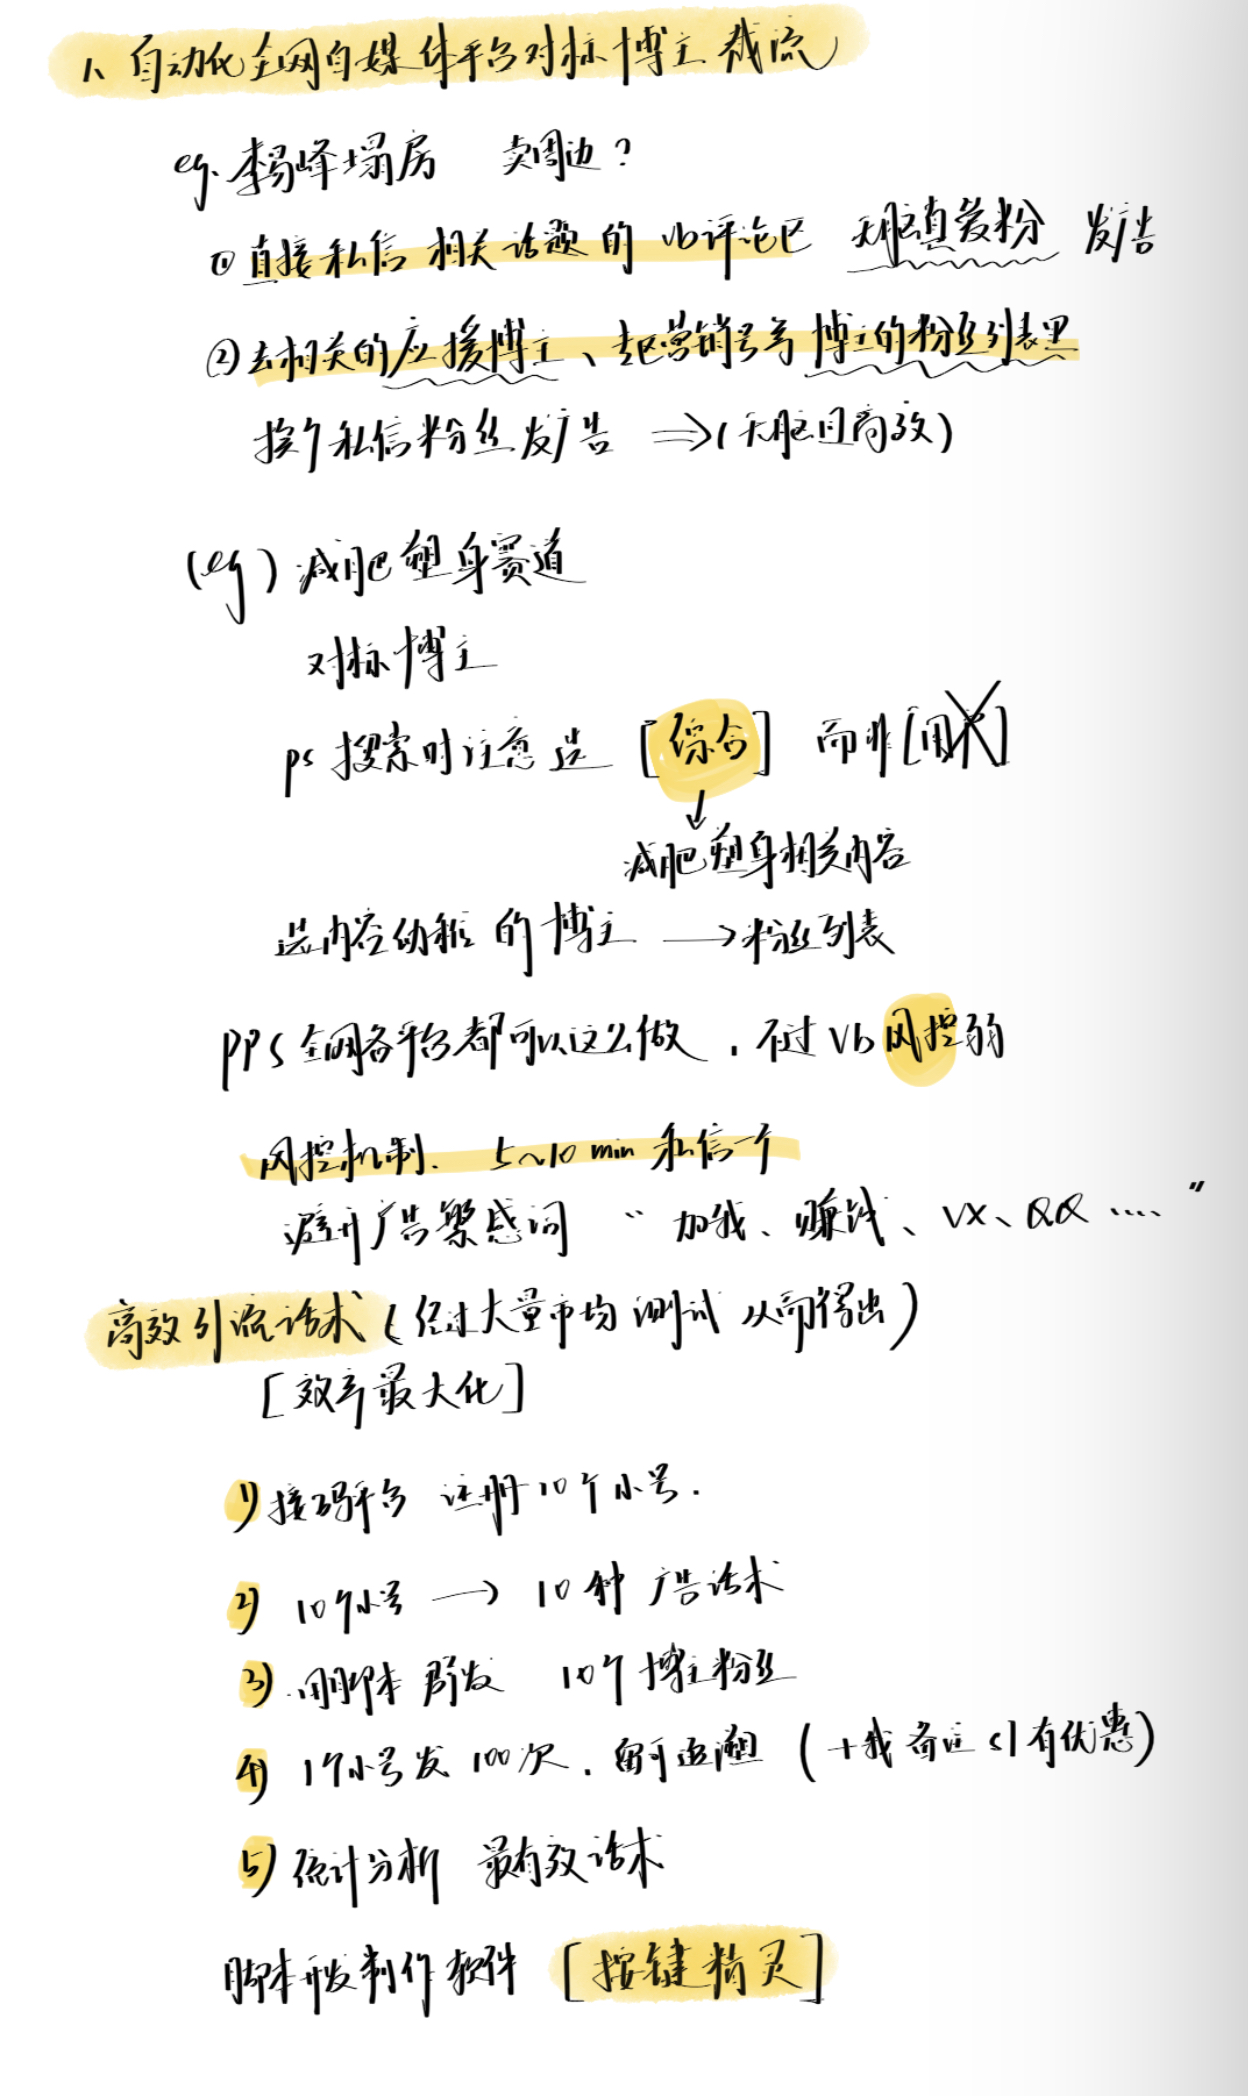 1、自动化全网自媒体平台对标博主截流
eg. 李易峰塌房 卖周边？
① 直接私信 相关话题的 vb评论区 无脑真爱粉 发广告
② 去相关的应援博主、超话营销号等 博主的粉丝列表里
挨个私信粉丝发广告 ⇒ (无脑且高效)
(eg) 减肥塑身赛道
对标博主
ps 搜索时注意选 [综合] 而非 [用户]
↓
减肥塑身相关内容
选内容幼稚的博主 → 粉丝列表
PPS 全网各平台都可以这么做，不过 Vb 风控弱
风控机制. 5~10 min 私信一个
避开广告敏感词 “加我、赚钱、VX、QQ ....”
高效引流话术 (经过大量市场测试 从而得出)
[效率最大化]
1) 接码平台 注册10个小号.
2) 10个小号 → 10种 广告话术
3) 用脚本 群发 10个博主粉丝
4) 1个小号发 100次. 留 (+我备注 有优惠)
5) 统计分析 最有效话术
脚本开发制作软件 [按键精灵]